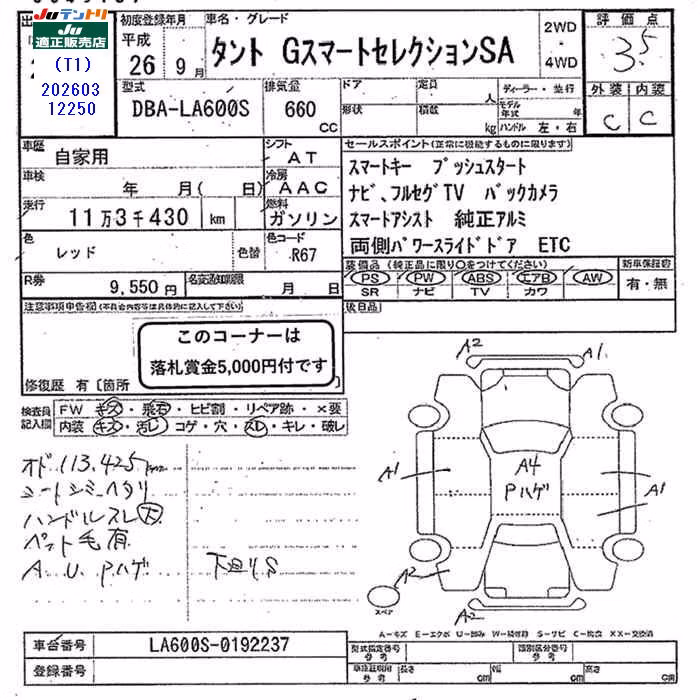 Juテントリ
Ju
適正販売店
(T1)
202603
12250
初度登録年月
平成
26年 9月
車名・グレード
タント GスマートセレクションSA
2WD
・
4WD
評価点
3.5
外装 内装
C C
型式
DBA-LA600S
排気量
660
CC
ドア
形状
定員
人
積数
kg
ディーラー・並行
モデル年式 年
ハンドル 左・右
車歴
自家用
シフト
AT
車検
年 月( 日)
冷房
AAC
走行
11万3千430 km
燃料
ガソリン
色
レッド
色替
色コード
R67
R券
9,550円
名変期限
月 日
セールスポイント(正常に機能するものに限ります)
スマートキー プッシュスタート
ナビ、フルセグTV バックカメラ
スマートアシスト 純正アルミ
両側パワースライドドア ETC
装備品 (純正品に限り○をつけてください)
PS PW ABS エアB AW
SR ナビ TV カワ
新車保証書
有・無
後日品
注意事項申告欄
このコーナーは
落札賞金5,000円付です
修復歴 有〔箇所
検査員
記入欄
FW キズ・飛石・ヒビ割・リペア跡・×要
内装 キズ・汚レ・コゲ・穴・スレ・キレ・破レ
オド 113,425km
シートシミヘタリ
ハンドルスレ大
ペット毛有
A.U.Pハゲ
下廻りS
A2
A1
A1
A4
Pハゲ
A1
A2
スペア
A2
A-キズ E-エクボ U-凹み W-補修跡 S-サビ C-腐食 XX-交換済
車台番号
LA600S-0192237
登録番号
型式指定番号
参考
類別区分番号
参考
車検証明用
参考
長さ cm
幅 cm
高さ cm